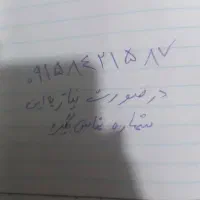 ۰۹۱۵۸۴۲۱۵۸۷
در صورت نیاز با این
شماره تماس بگیرید